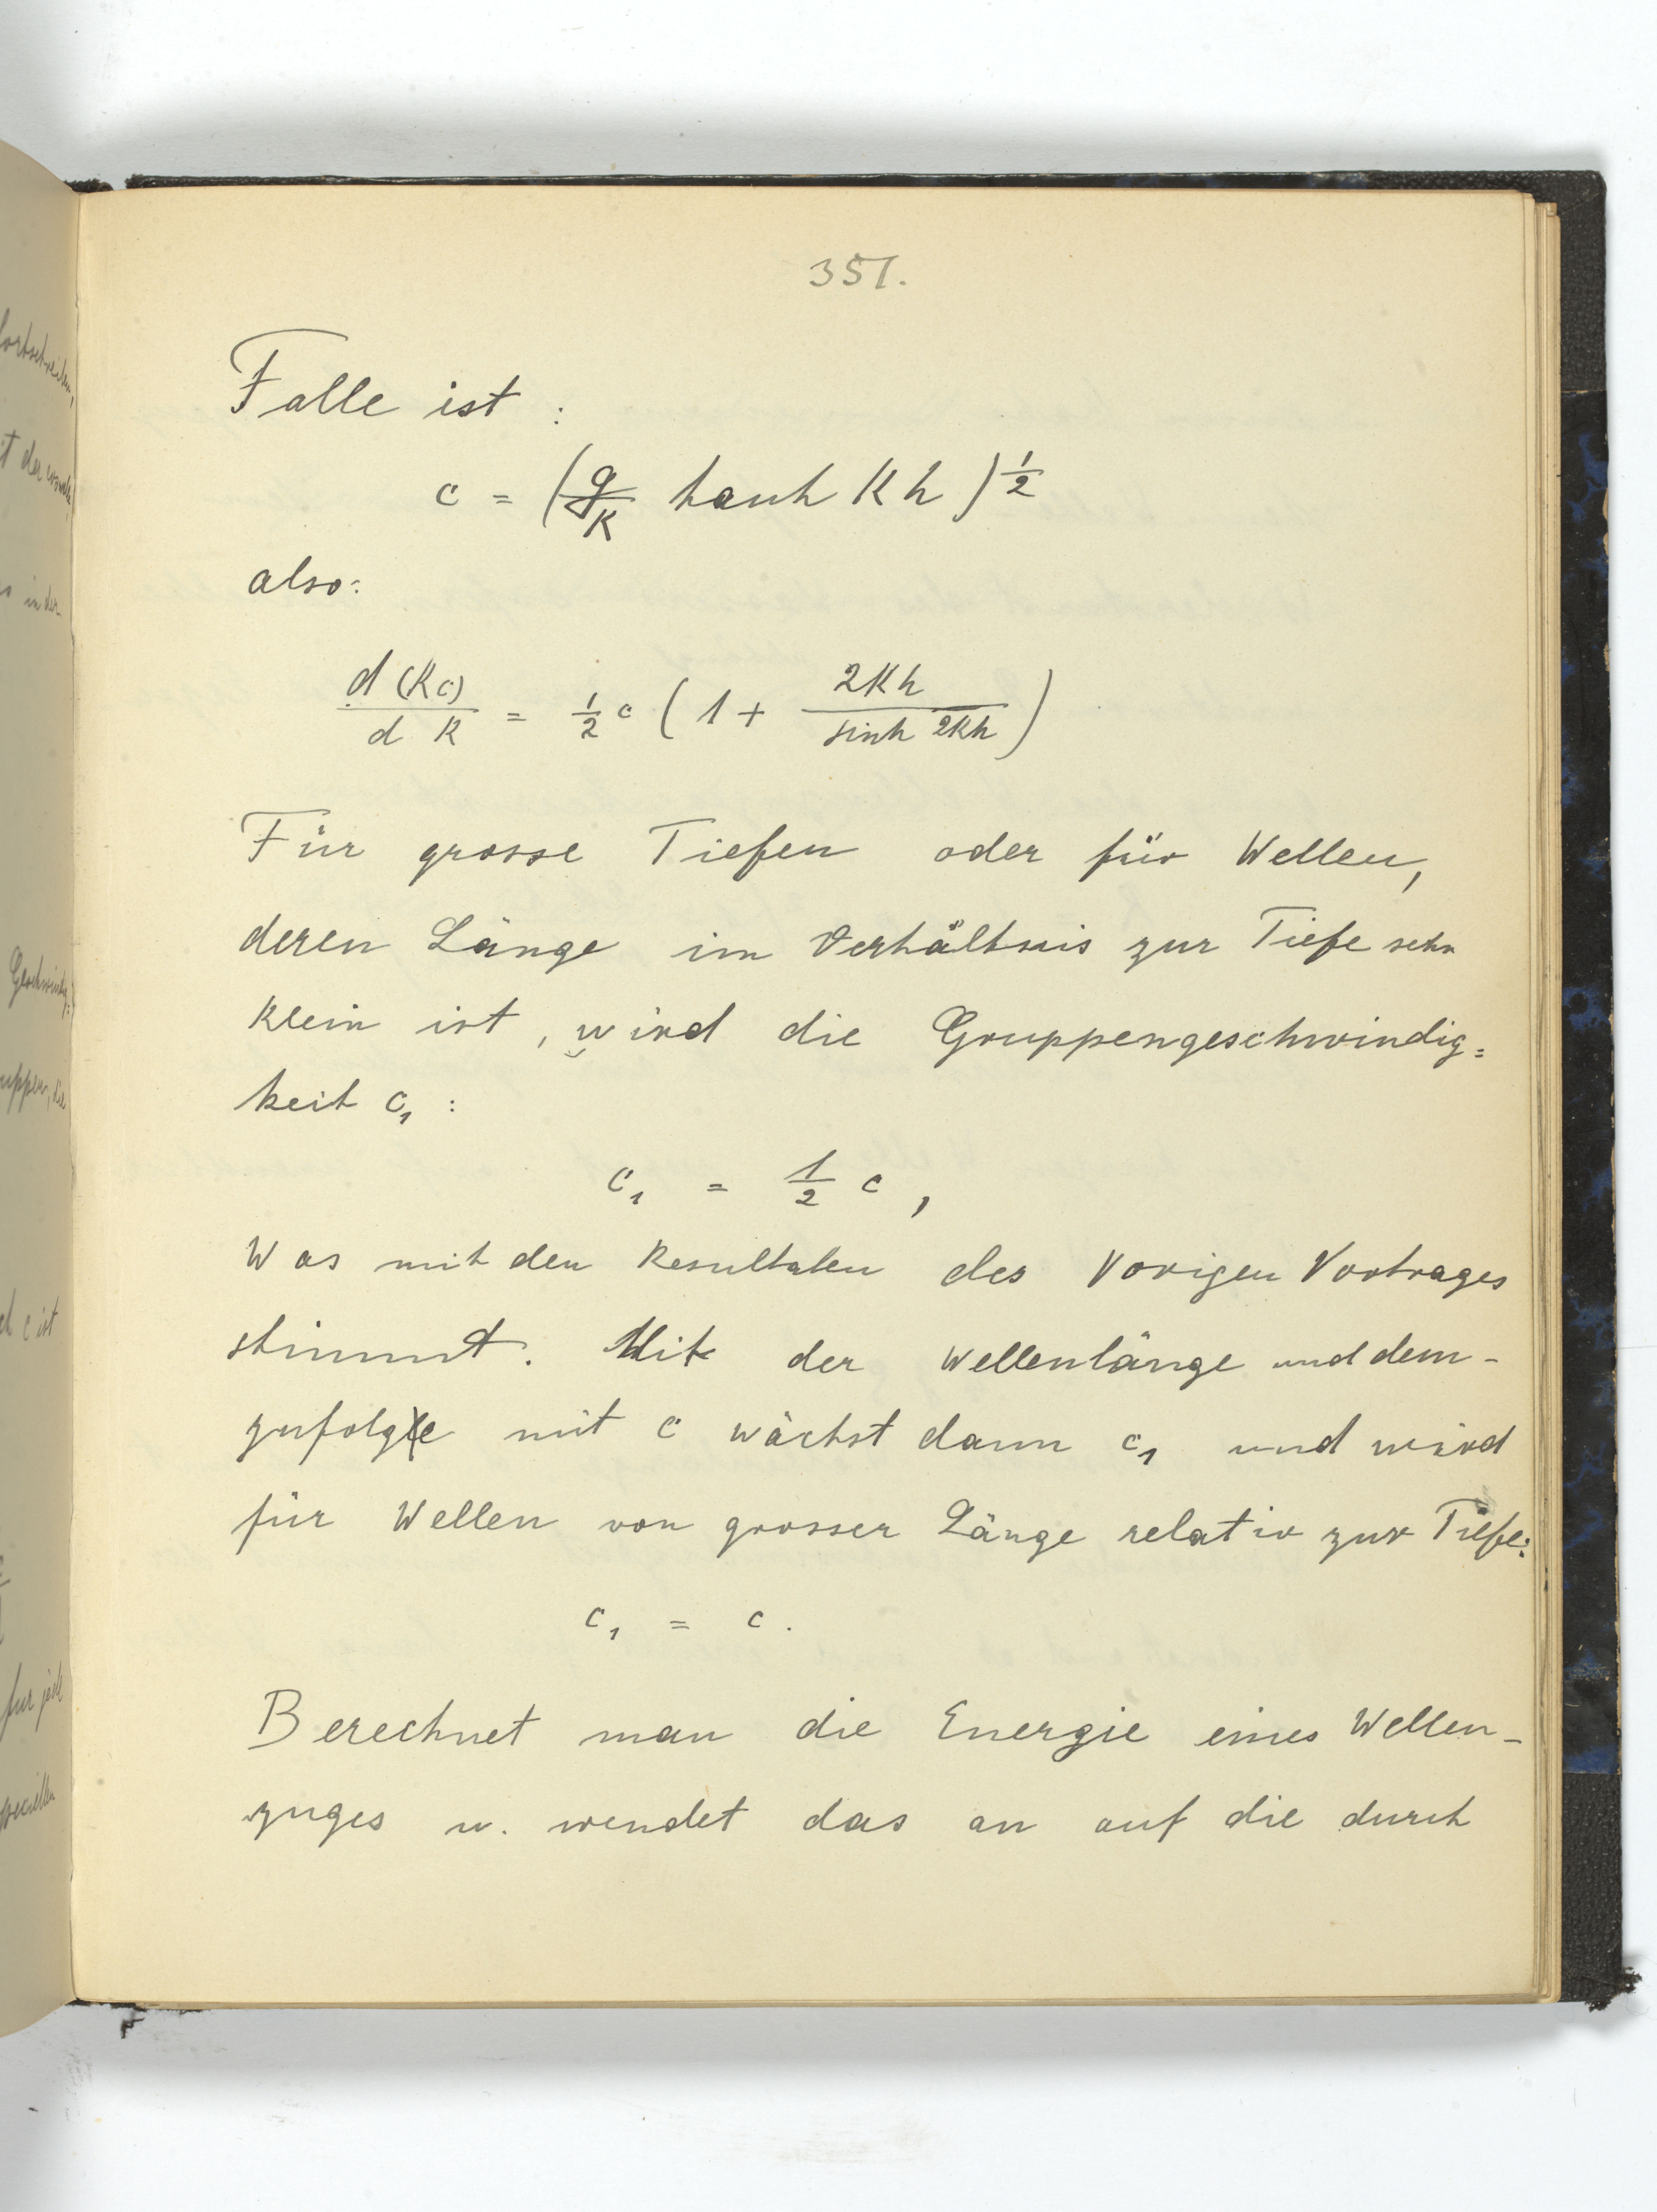 351.
Falle ist :
c = (g/K tanh Kh)^1/2
also:
d(Kc)/dK = 1/2 c (1 + 2Kh/sinh 2Kh)
Für grosse Tiefen oder für Wellen,
deren Länge im Verhältnis zur Tiefe sehr
klein ist, wird die Gruppengeschwindig=
keit c₁ :
c₁ = 1/2 c ,
Was mit den Resultaten des Vorigen Vortrages
stimmt. Mit der Wellenlänge und dem-
zufolge mit c wächst dann c₁ und wird
für Wellen von grosser Länge relativ zur Tiefe:
c₁ = c .
Berechnet man die Energie eines Wellen-
zuges u. wendet das an auf die durch